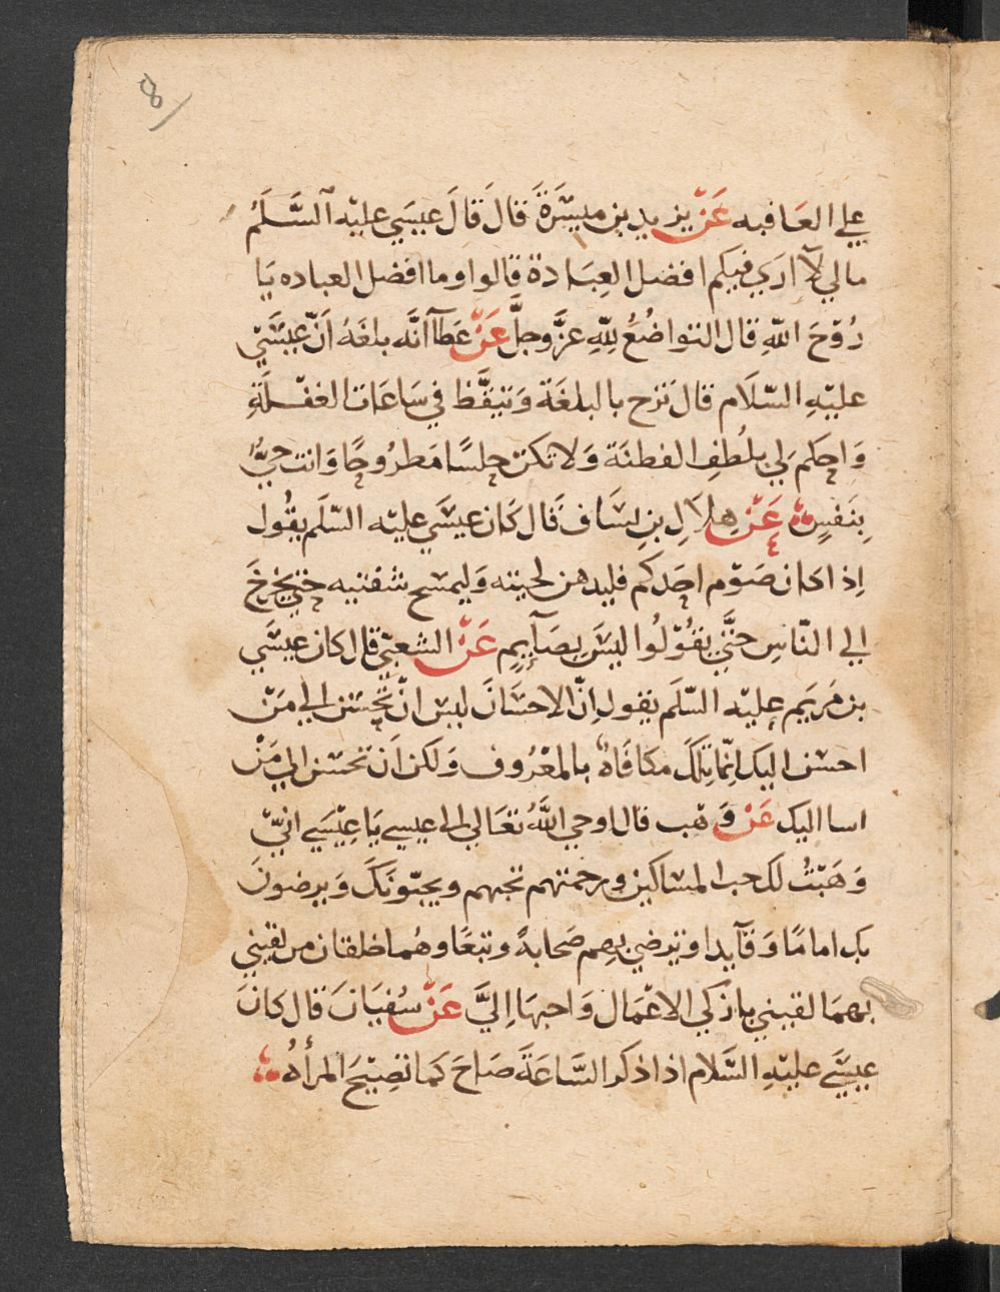 8
علي العَافيه عَنْ يزيد بن ميسَرَةَ قَالَ قَالَ عيسَي عليْه السَّلَمُ
مالي لآ اري فيكم افضل العِبَادة قالوا وما افضل العباده يَا
رُوْحَ اللّهِ قال التواضُعُ لِلّهِ عزَّ وجلَّ عَنْ عَطآ انَّه بلغَهُ انّ عيسَيْ
عليْهِ السّلَام قال تزح بالبلغَة وَتيقَّظ في سَاعَات الغفْلَةِ
وَاحكم بلُطفِ الفطنَة وَلا تكن حلسًا مَطرُوحًا وَانت حيٌّ
بِنَفسٍ عَنْ هِلَالِ بنِ يسَاف قَال كَان عيسَي عليْه السّلَم يقُول
اِذا كان صَوْم احَدكم فليدهن لحيته وَليمسَح شفتيه حتي يخرخَ
الي النّاسِ حتَّي يقُوْلُوا ليسَ بصَآيمٍ عَنْ الشعبيّ قال كان عيسَي
بن مَريَم عليْه السّلَم يقول اِنّ الاحسَانَ ليس انْ تحسَن الي مَنْ
احسن اليك انّما تِلكَ مكافَاةٌ بالمعْرُوف وَلكن اَن تحسَن الي مَنْ
اسا اليك عَنْ وَهْب قال اوحي اللَّهُ تعَالي الي عيسي يَا عِيْسَي انيّ
وَهَبْتُ لك حب المسَاكين ورحمَتهم تحبهم ويحبّونَكَ وَيرضونَ
بك امامًا وَقآيدا وَترضي بهم صَحابةً وتبعَا وهُما خلقان من لقيني
بهمَا لقيني بازكي الاعْمَال وَاحبهَا اِليَّ عَنْ سُفيَانَ قال كانَ
عيسَي عليْهِ السَّلام اذا ذكر السَّاعَةَ صَاحَ كَما تصِيْحَ المرأةُ